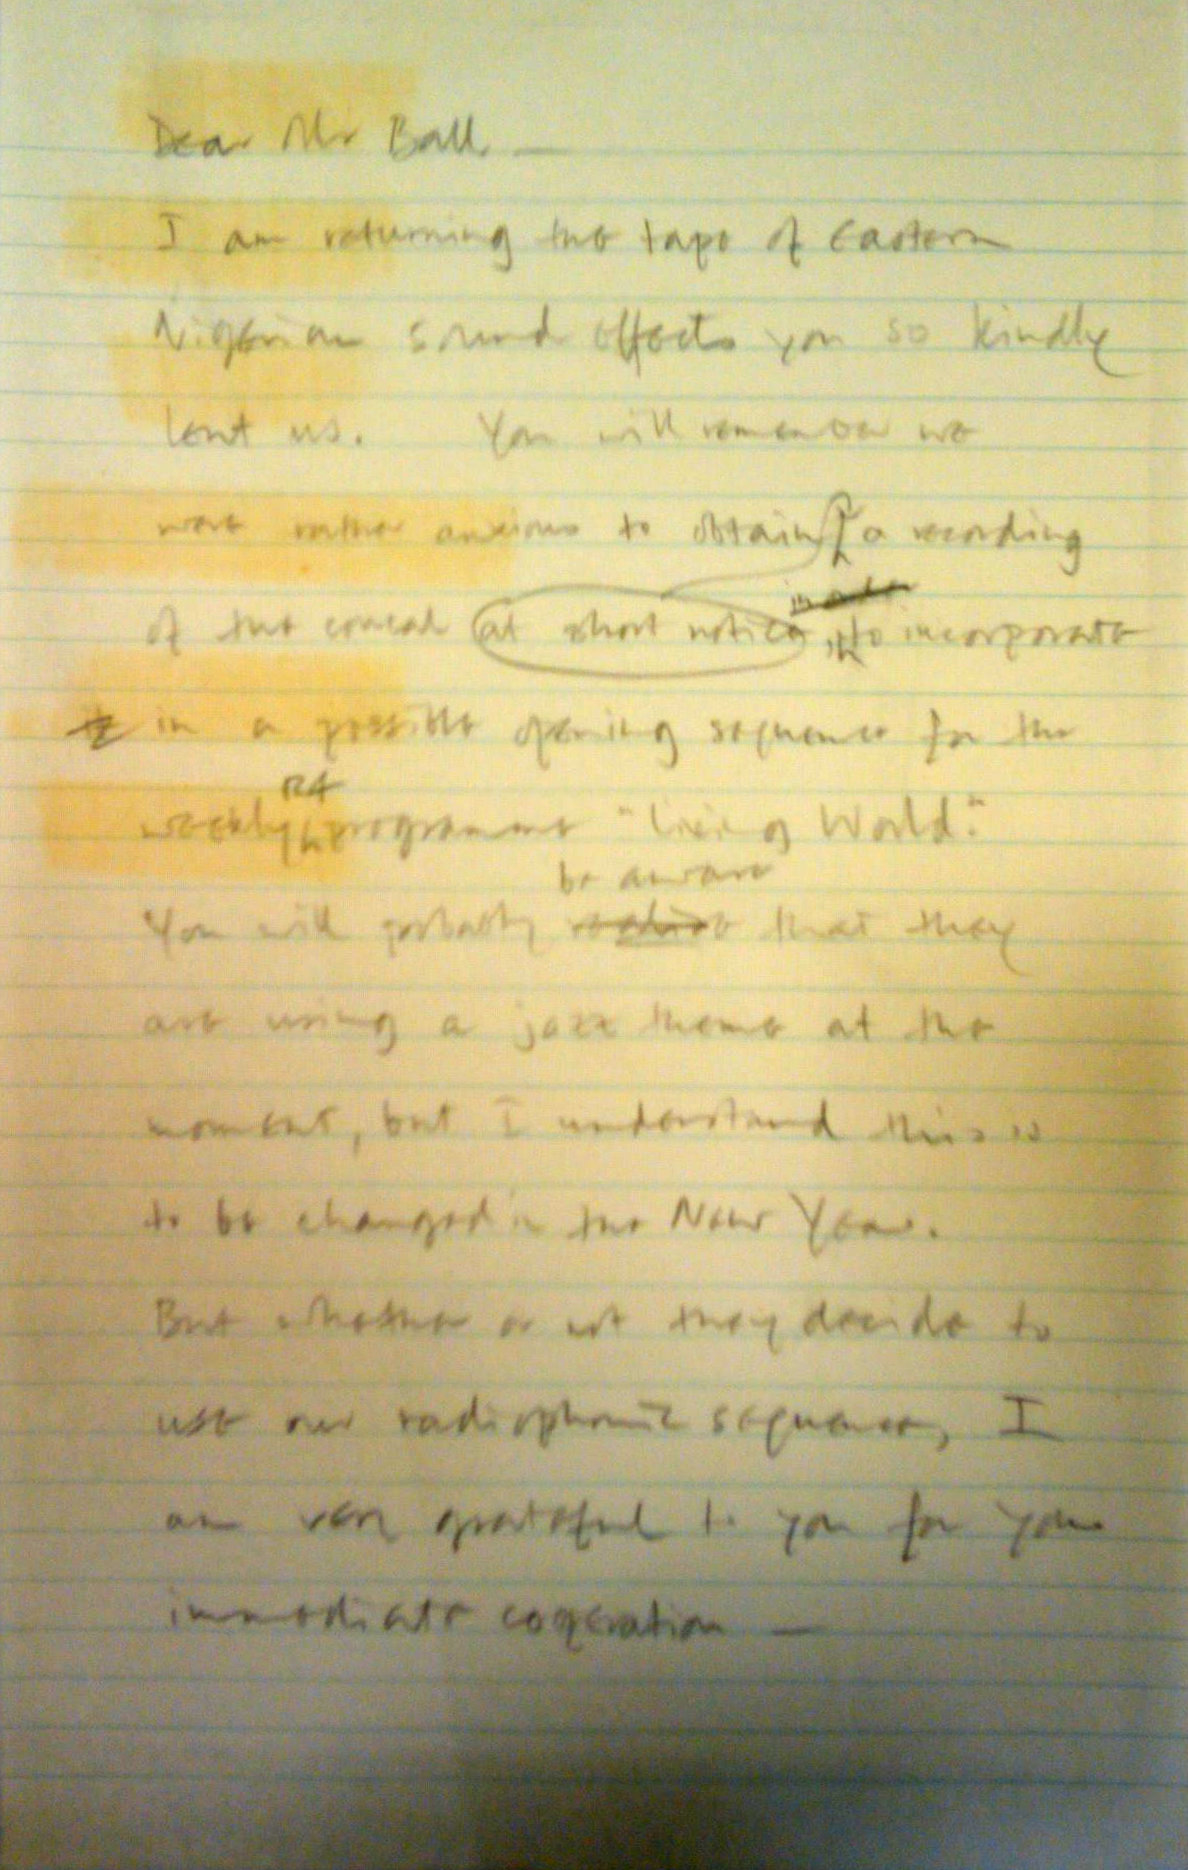 Dear Mr Ball —
I am returning the tape of Eastern
Nigerian sound effects you so kindly
lent us. You will remember we
were rather anxious to obtain a recording
of the at short notice to incorporate
in a possible opening sequence for the
R4
weekly programme "Living World."
be aware
You will probably realise that they
are using a jazz theme at the
moment, but I understand this is
to be changed in the New Year.
But whether or not they decide to
use our radiophonic sequence, I
am very grateful to you for your
immediate cooperation —